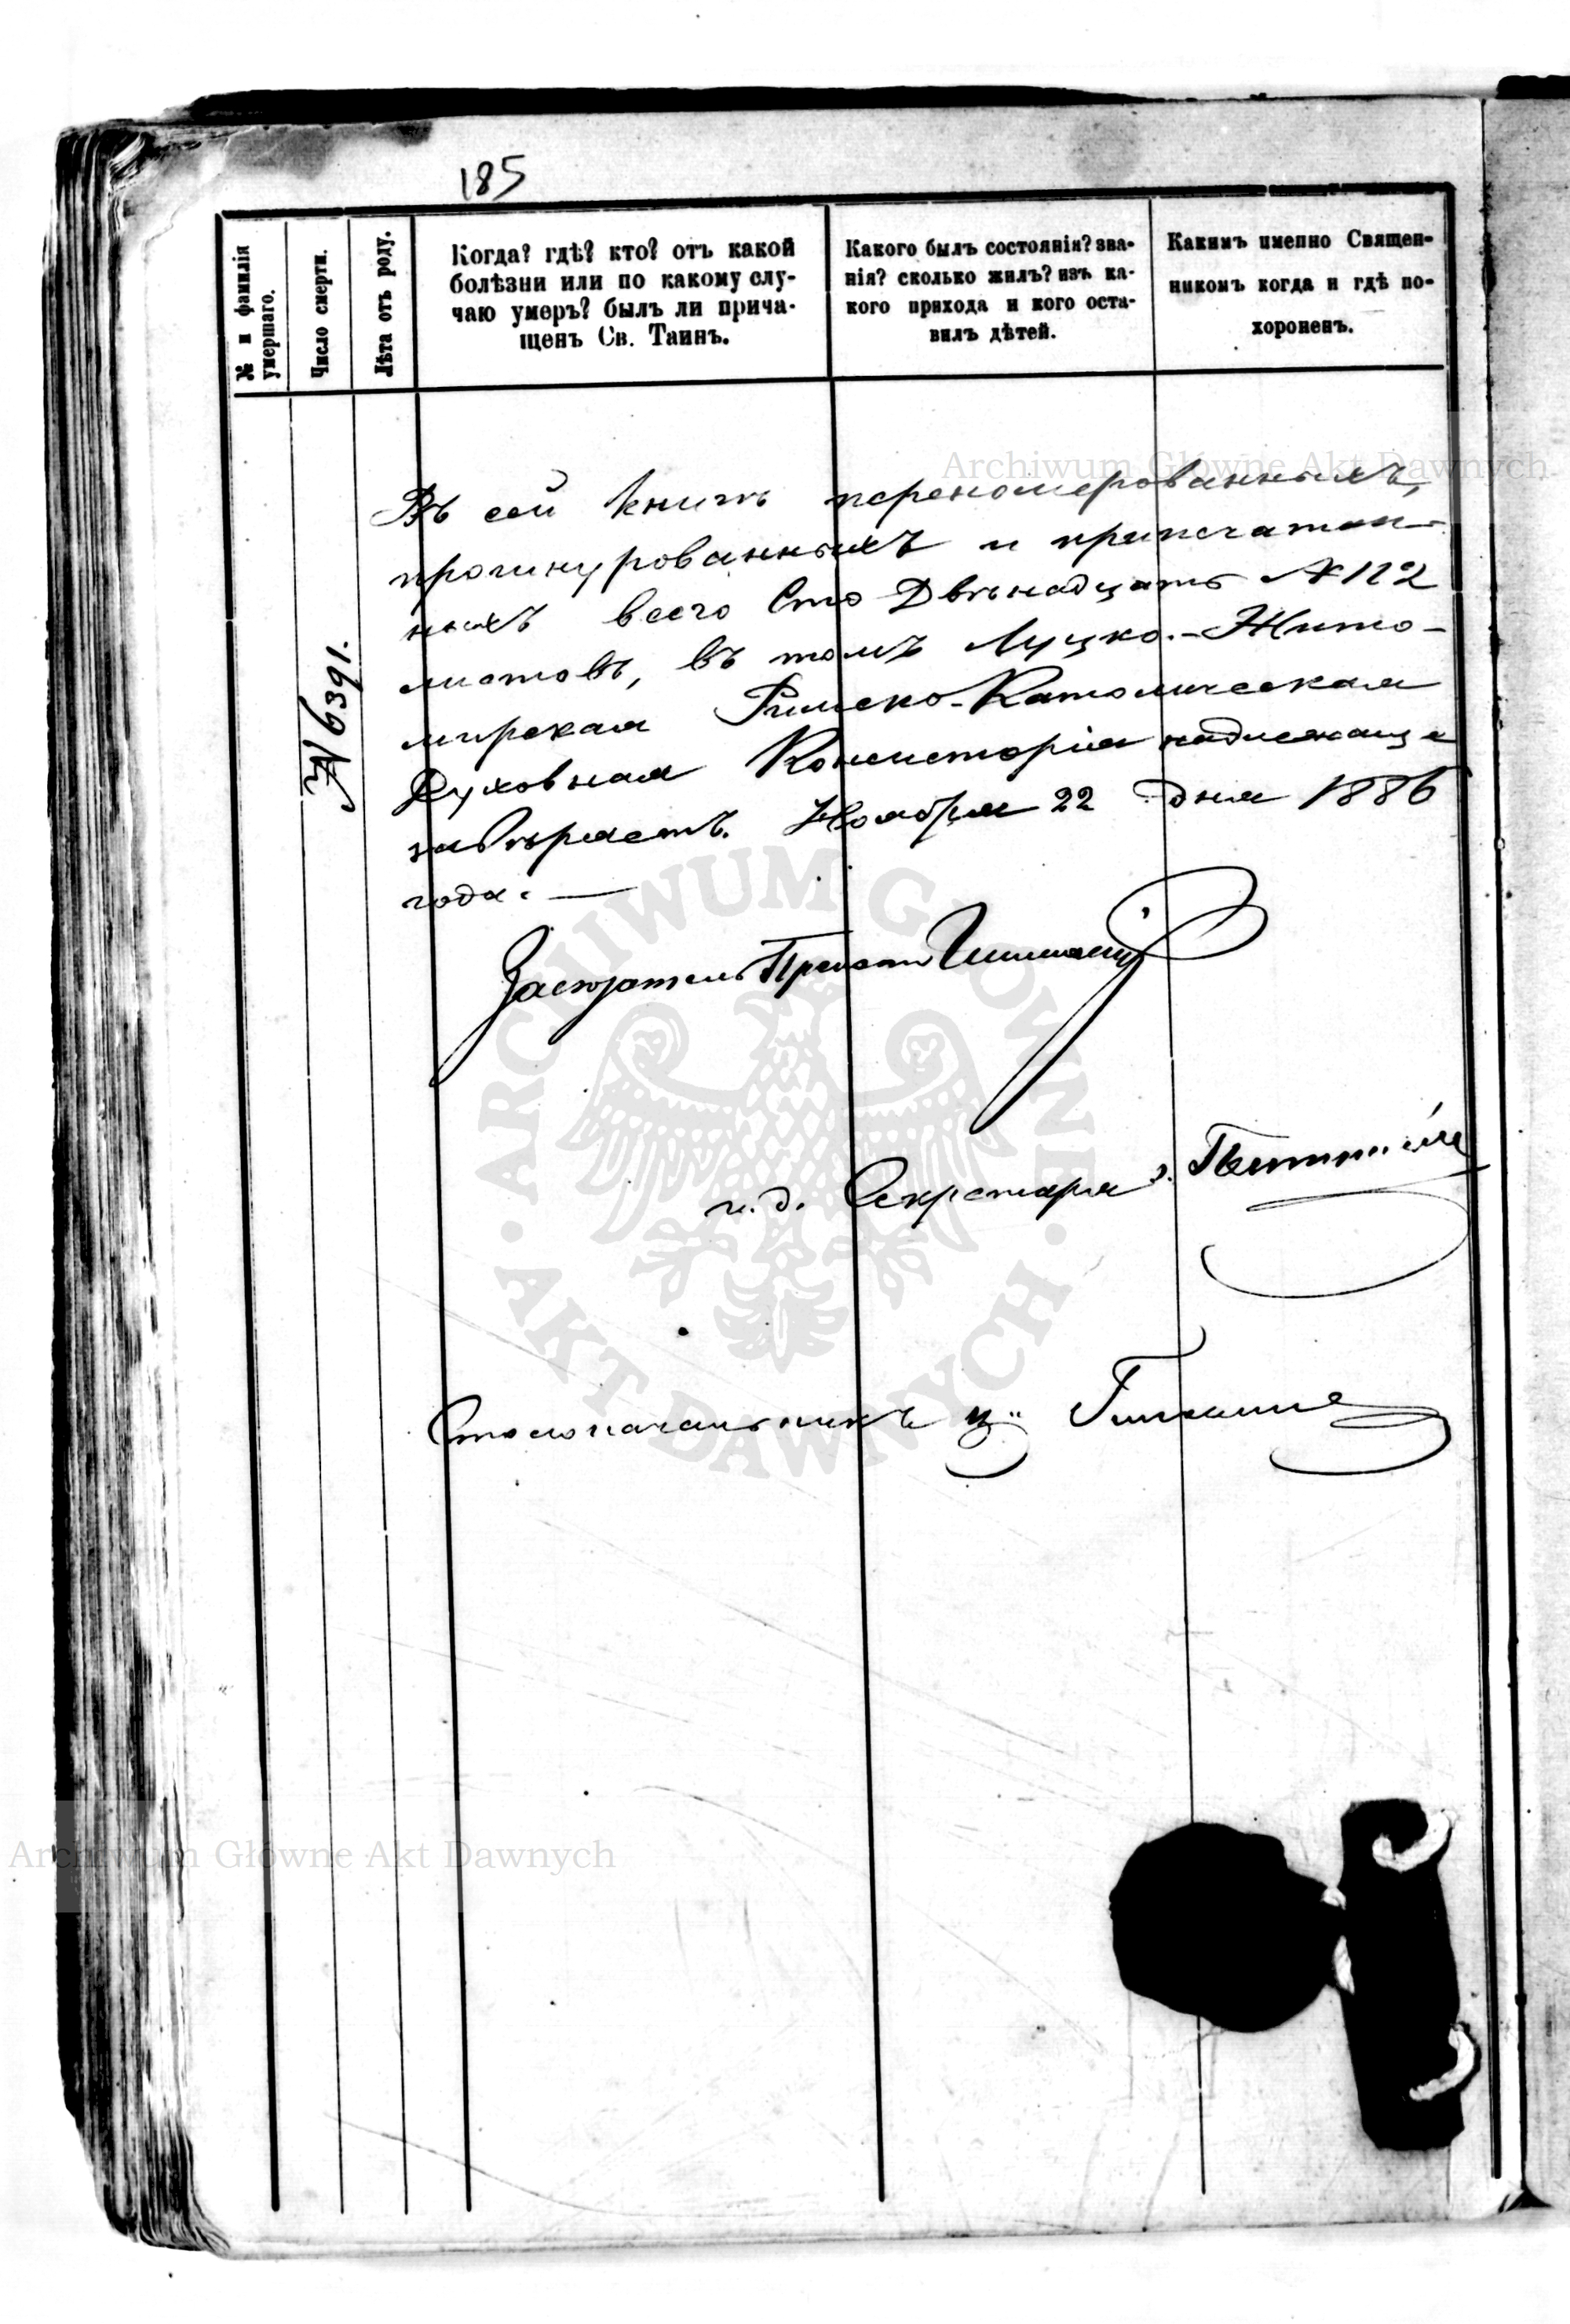 185
№ и фамилія
умершаго.
Число смерти.
Лѣта отъ роду.
Когда? гдѣ? кто? отъ какой
болѣзни или по какому слу-
чаю умеръ? былъ ли прича-
щенъ Св. Таинъ.
Какого былъ состоянія? зва-
нія? сколько жилъ? изъ ка-
кого прихода и кого оста-
вилъ дѣтей.
Какимъ именно Священ-
никомъ когда и гдѣ по-
хороненъ.
Archiwum Główne Akt Dawnych
Въ сей книгѣ перенумерованныхъ,
прошнурованныхъ и припечатан-
ныхъ всего Сто Двѣнадцать № 112
листовъ, въ томъ Луцко-Жито-
мирская Римско-Католическая
Духовная Консисторія надлежаще
завѣряетъ. Ноября 22 дня 1886
года. —
№ 6391.
Засѣдатель Прелатъ
и. д. Секретаря
Столоначальникъ
ARCHIWUM GŁÓWNE
AKT DAWNYCH
Archiwum Główne Akt Dawnych